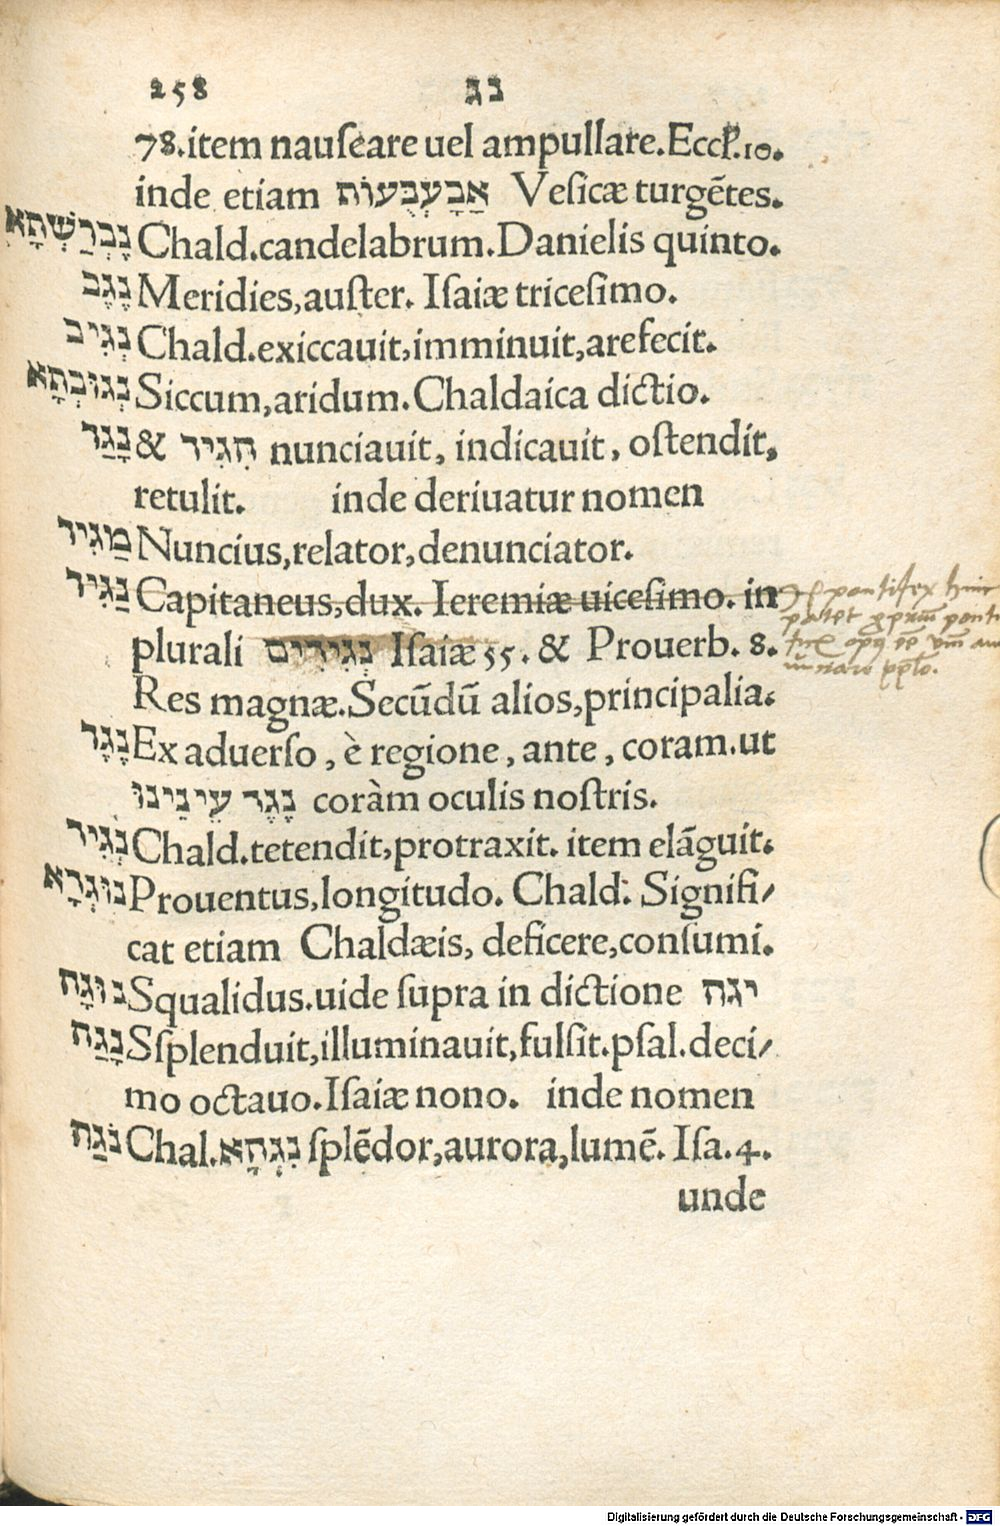 258 נג
78.item nauſeare uel ampullare.Eccl.10.
inde etiam אֲבָעְבֻּעוֹת Veſicæ turgētes.
נֶבְרַשְׁתָּא Chald.candelabrum.Danielis quinto.
נֶגֶב Meridies,auſter. Iſaiæ triceſimo.
נְגִיב Chald.exiccauit,imminuit,arefecit.
נְגוּבְתָא Siccum,aridum.Chaldaica dictio.
נָגַד & הִגִיד nunciauit, indicauit, oſtendit,
retulit. inde deriuatur nomen
מַגִיד Nuncius,relator,denunciator.
נַגִיד Capitaneus,dux. Ieremiæ uiceſimo. in
pontifex hinc
patet
plurali נְגִידִים Iſaiæ 55. & Prouerb. 8.
Res magnæ.Secūdū alios,principalia.
נֶגֶד Ex aduerſo, è regione, ante, coram.ut
נֶגֶד עֵינֵינוּ coràm oculis noſtris.
נְגִיד Chald.tetendit,protraxit. item elāguit.
נוּגְדָא Prouentus,longitudo. Chald. Signifi/
cat etiam Chaldæis, deficere,conſumi.
נוּגָה Squalidus.uide ſupra in dictione יגה
נָגַה Sſplenduit,illuminauit,fulſit.pſal.deci/
mo octauo.Iſaiæ nono. inde nomen
נֹגַה Chal.נִגְהָא ſplēdor,aurora,lumē. Iſa.4.
unde
Digitalisierung gefördert durch die Deutsche Forschungsgemeinschaft - DFG